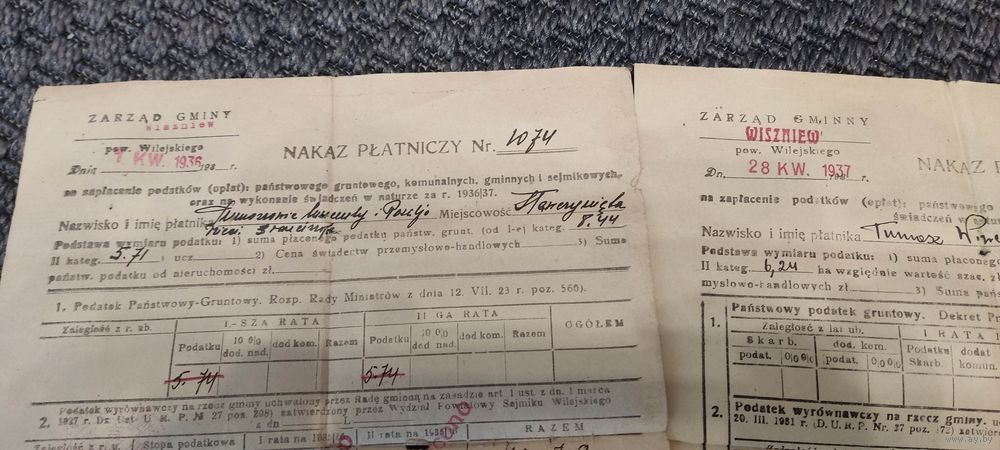 ZARZĄD GMINY
Wiszniew
pow. Wilejskiego
Dnia 7 KW. 1936 193 r.
NAKAZ PŁATNICZY Nr. 1074
na zapłacenie podatków (opłat): państwowego gruntowego, komunalnych, gminnych i sejmikowych,
oraz na wykonanie świadczeń w naturze za r. 1936/37.
Nazwisko i imię płatnika Miejscowość
8.44
Podstawa wymiaru podatku: 1) suma płaconego podatku państw. grunt. (od I-ej kateg.
II kateg. 5.71 ; ucz. 2) Cena świadectw przemysłowo-handlowych 3) Suma
państw. podatku od nieruchomości zł.
1. Podatek Państwowy-Gruntowy. Rozp. Rady Ministrów z dnia 12. VII. 23 r. poz. 560).
Zaległość z r. ub.
I.-SZA RATA
II GA RATA
OGÓŁEM
Podatku 10 0/0 dod. nad. dod kom. Razem Podatku 10 0/0 dod. nad. dod kom. Razem
5.74 5.74
2. Podatek wyrównawczy na rzecz gminy uchwalony przez Radę gminną na zasadzie art 1 ust. z dn. 1 marca
1927 r. Dz Ust. U R. P. № 27 poz. 208) zatwierdzony przez Wydział Powiatowy Sejmiku Wilejskiego
z dn. L.
Zaległość z r. w. Stopa podatkowa I rata na 193 II rata na 1936 RAZEM
ZARZĄD GMINNY
WISZNIEW
pow. Wilejskiego
Dn, 28 KW. 1937 193 r.
NAKAZ
na zapłacenie podatków (opłat): państwowego
świadczeń w
Nazwisko i imię płatnika Tumasz
Podstawa wymiaru podatku: 1) suma płaconego
II kateg. 6,24 ha względnie wartość szac. z
mysłowo-handlowych zł. 3) Suma pań
1. Państwowy podatek gruntowy. Dekret Pr
Zaległość z lat ub.
I RATA
skarb. dod. kom.
podat. 0/00/0 podat. 0/00/0 Podatku Skarb. dodat komun.
2. Podatek wyrównawczy na rzecz gminy.
20. III. 1931 r. (D. U. R. P. Nr. 27 poz. 172) zatwier
www.ay.by